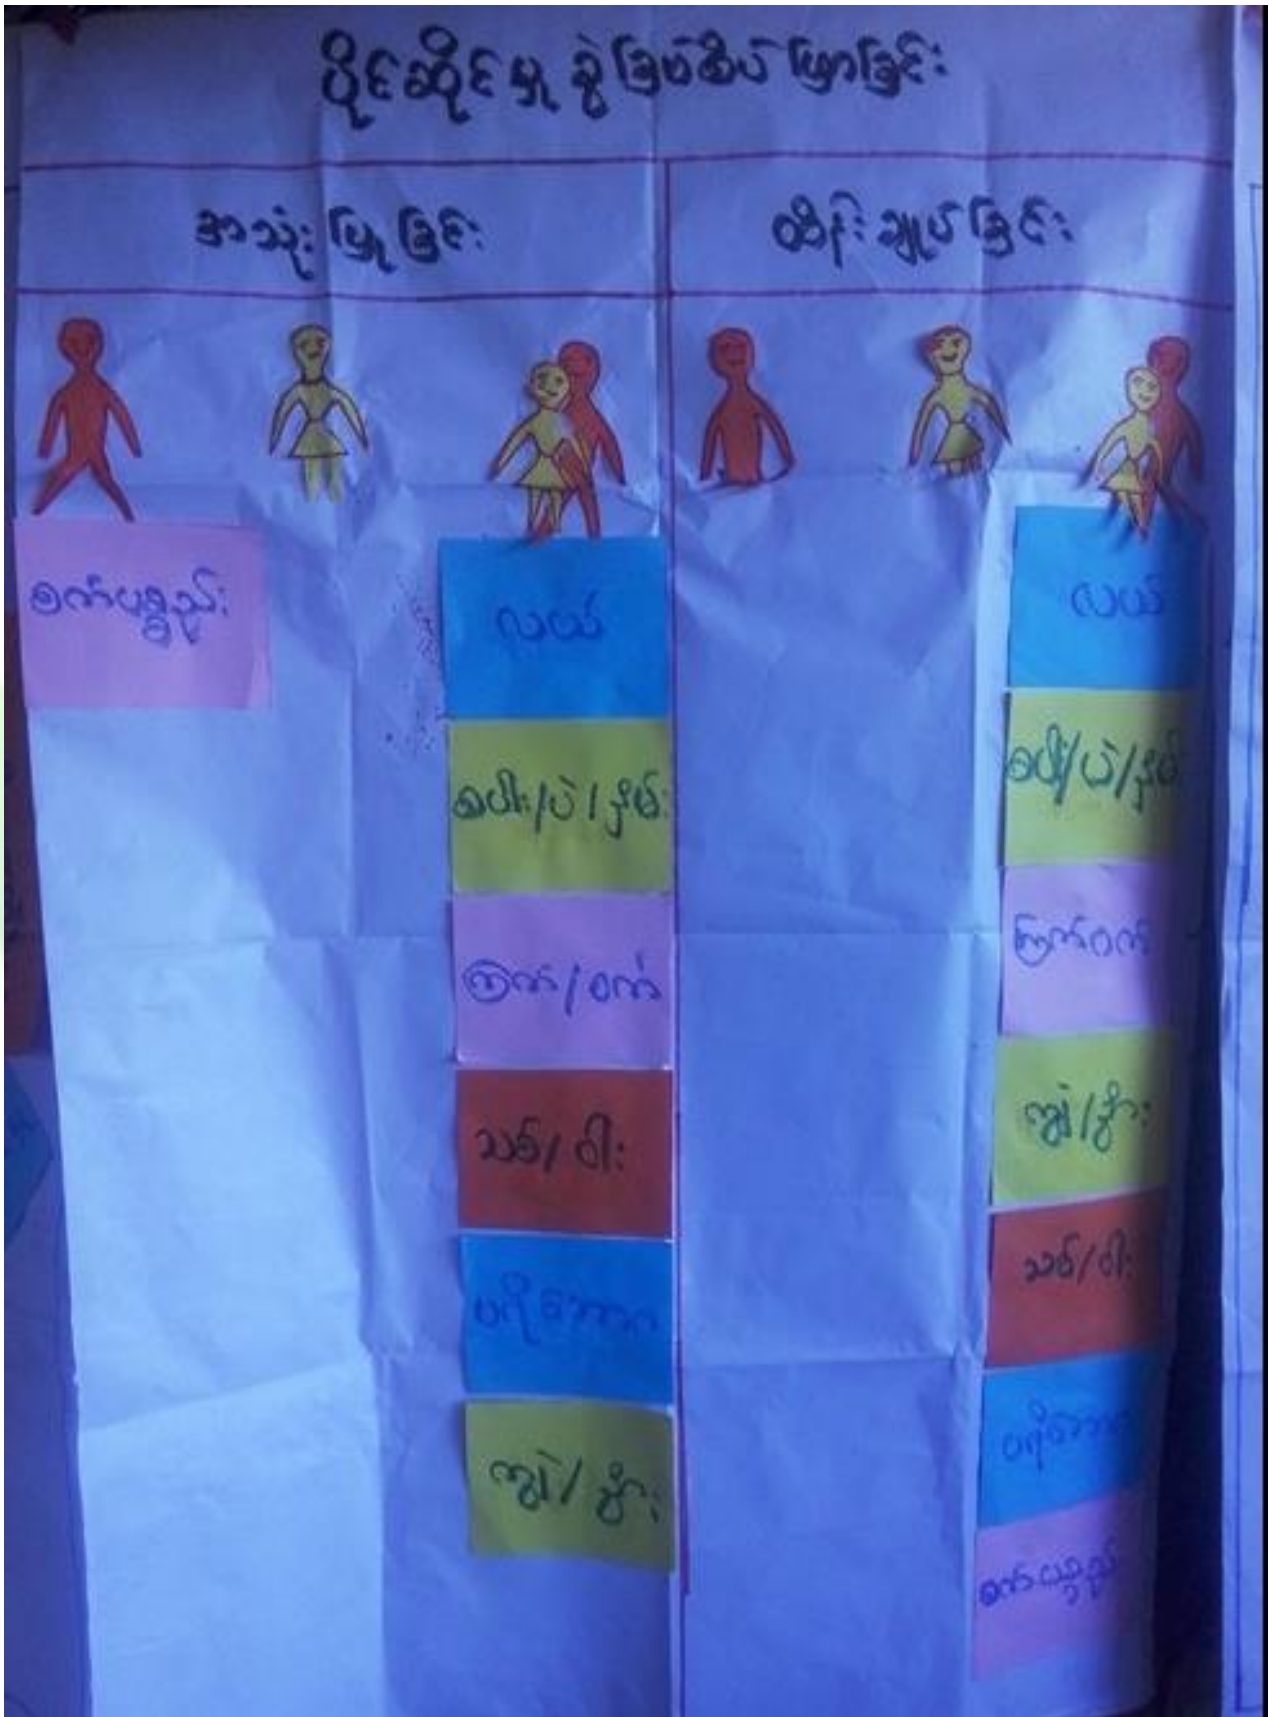 ပိုင်ဆိုင်မှု ခွဲခြမ်းစိပ်ဖြာခြင်း
အသုံးပြုခြင်း
ထိန်းချုပ်ခြင်း
စက်ပစ္စည်း
လယ်
စပါး/ပဲ/နှမ်း
ကြက်/ဝက်
သစ်/ဝါး
ပရိဘောဂ
ကျွဲ/နွား
လယ်
စပါး/ပဲ/နှမ်း
ကြက်ဝက်
ကျွဲ/နွား
သစ်/ဝါး
ပရိဘောဂ
စက်ပစ္စည်း